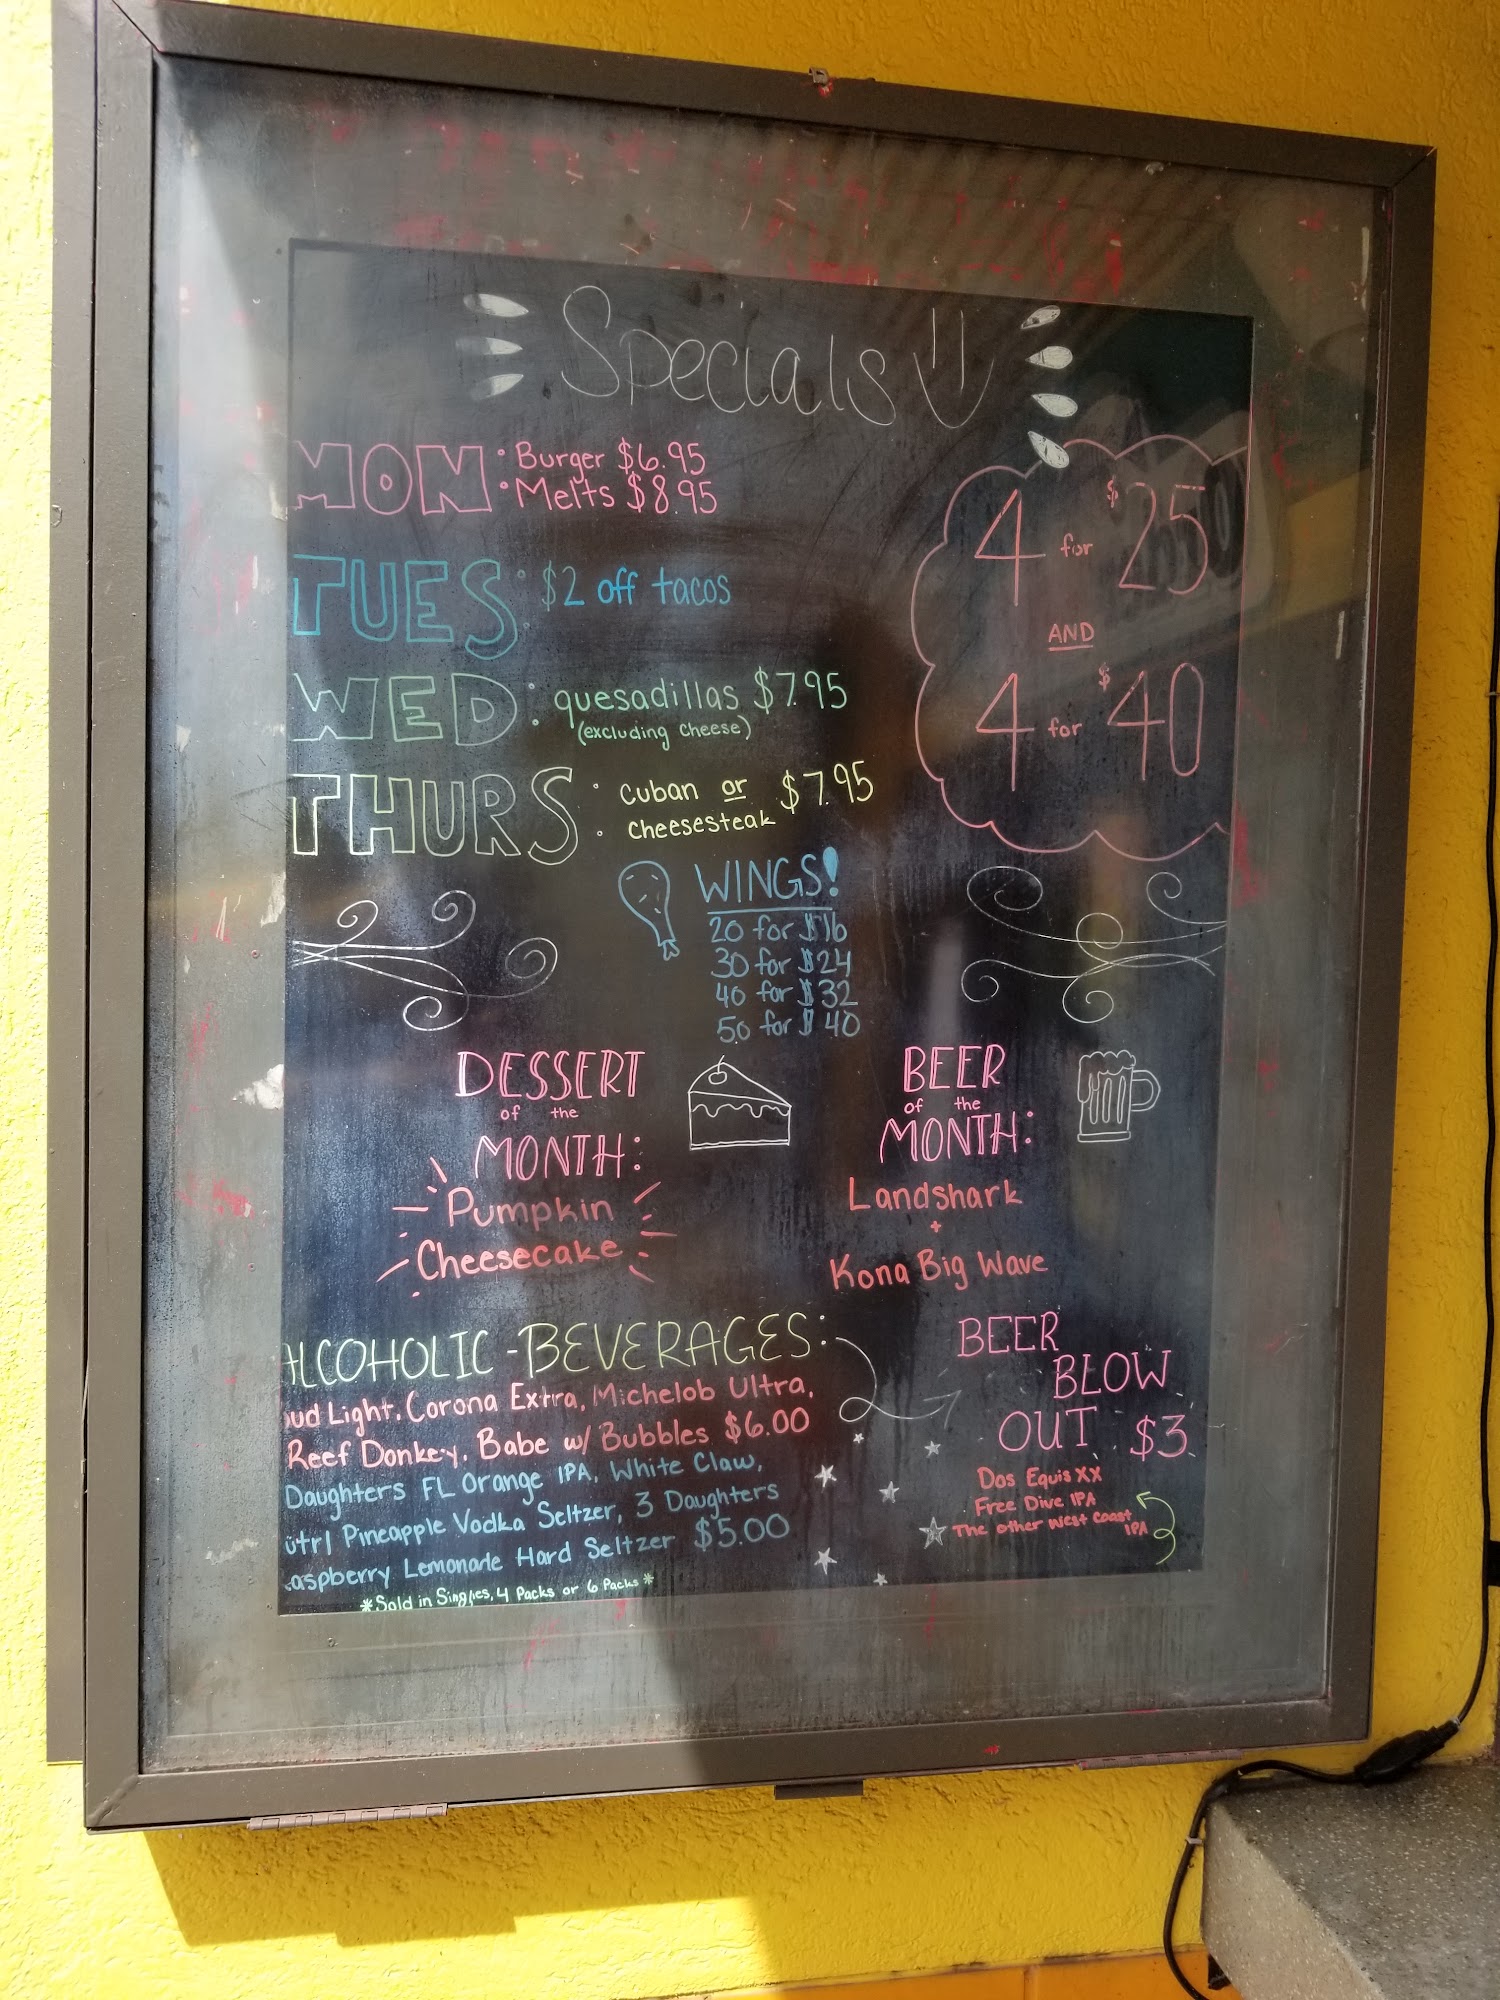 Specials
MON
• Burger $6.95
• Melts $8.95
4 for $25
AND
4 for $40
TUES: $2 off tacos
WED: quesadillas $7.95
(excluding cheese)
THURS: cuban or $7.95
cheesesteak
WINGS!
20 for $16
30 for $24
40 for $32
50 for $40
DESSERT
of the
MONTH:
Pumpkin
Cheesecake
BEER
of the
MONTH:
Landshark
+
Kona Big Wave
ALCOHOLIC-BEVERAGES:
ud Light, Corona Extra, Michelob Ultra,
Reef Donkey, Babe w/ Bubbles $6.00
Daughters FL Orange IPA, White Claw,
utrl Pineapple Vodka Seltzer, 3 Daughters
aspberry Lemonade Hard Seltzer $5.00
*Sold in Singles, 4 Packs or 6 Packs*
BEER
BLOW
OUT $3
Dos Equis XX
Free Dive IPA
The other West Coast
IPA